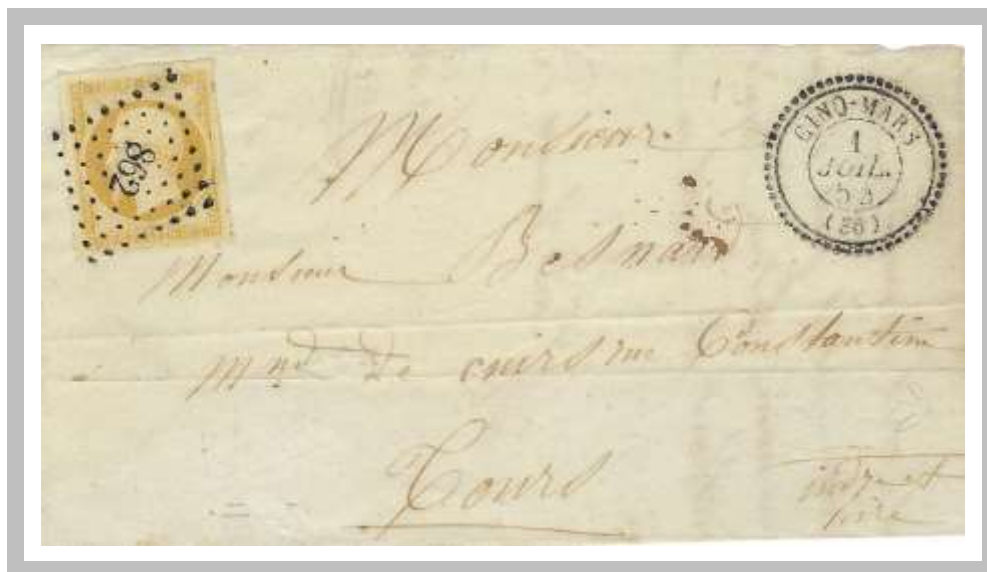 862
CINQ-MARS
1
JUIL.
54
(36)
Monsieur
Monsieur Besnard
Mnd de cuirs rue Constantine
Tours
indre et
loire